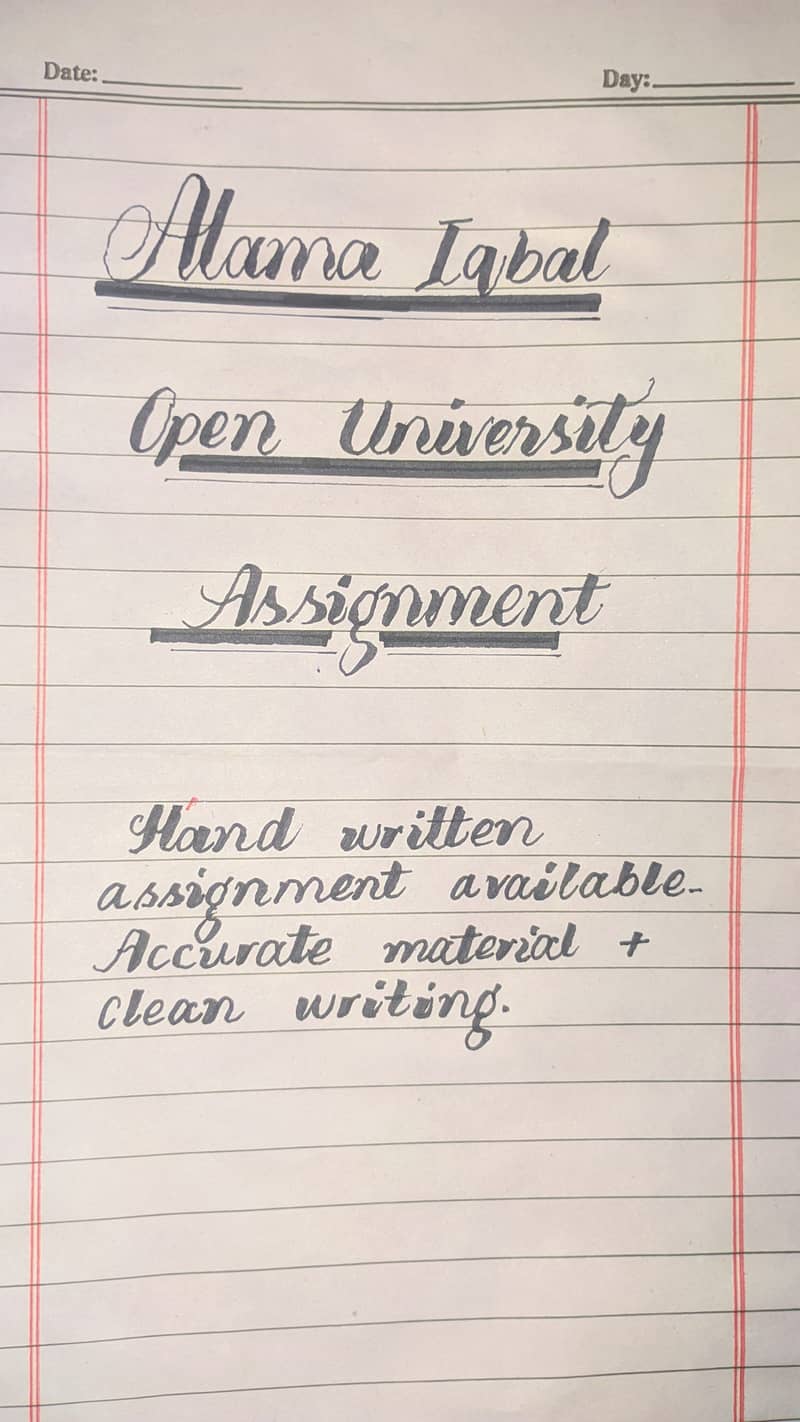 Date: Day:
Alama Iqbal
Open University
Assignment
Hand written
assignment available-
Accurate material +
clean writing.